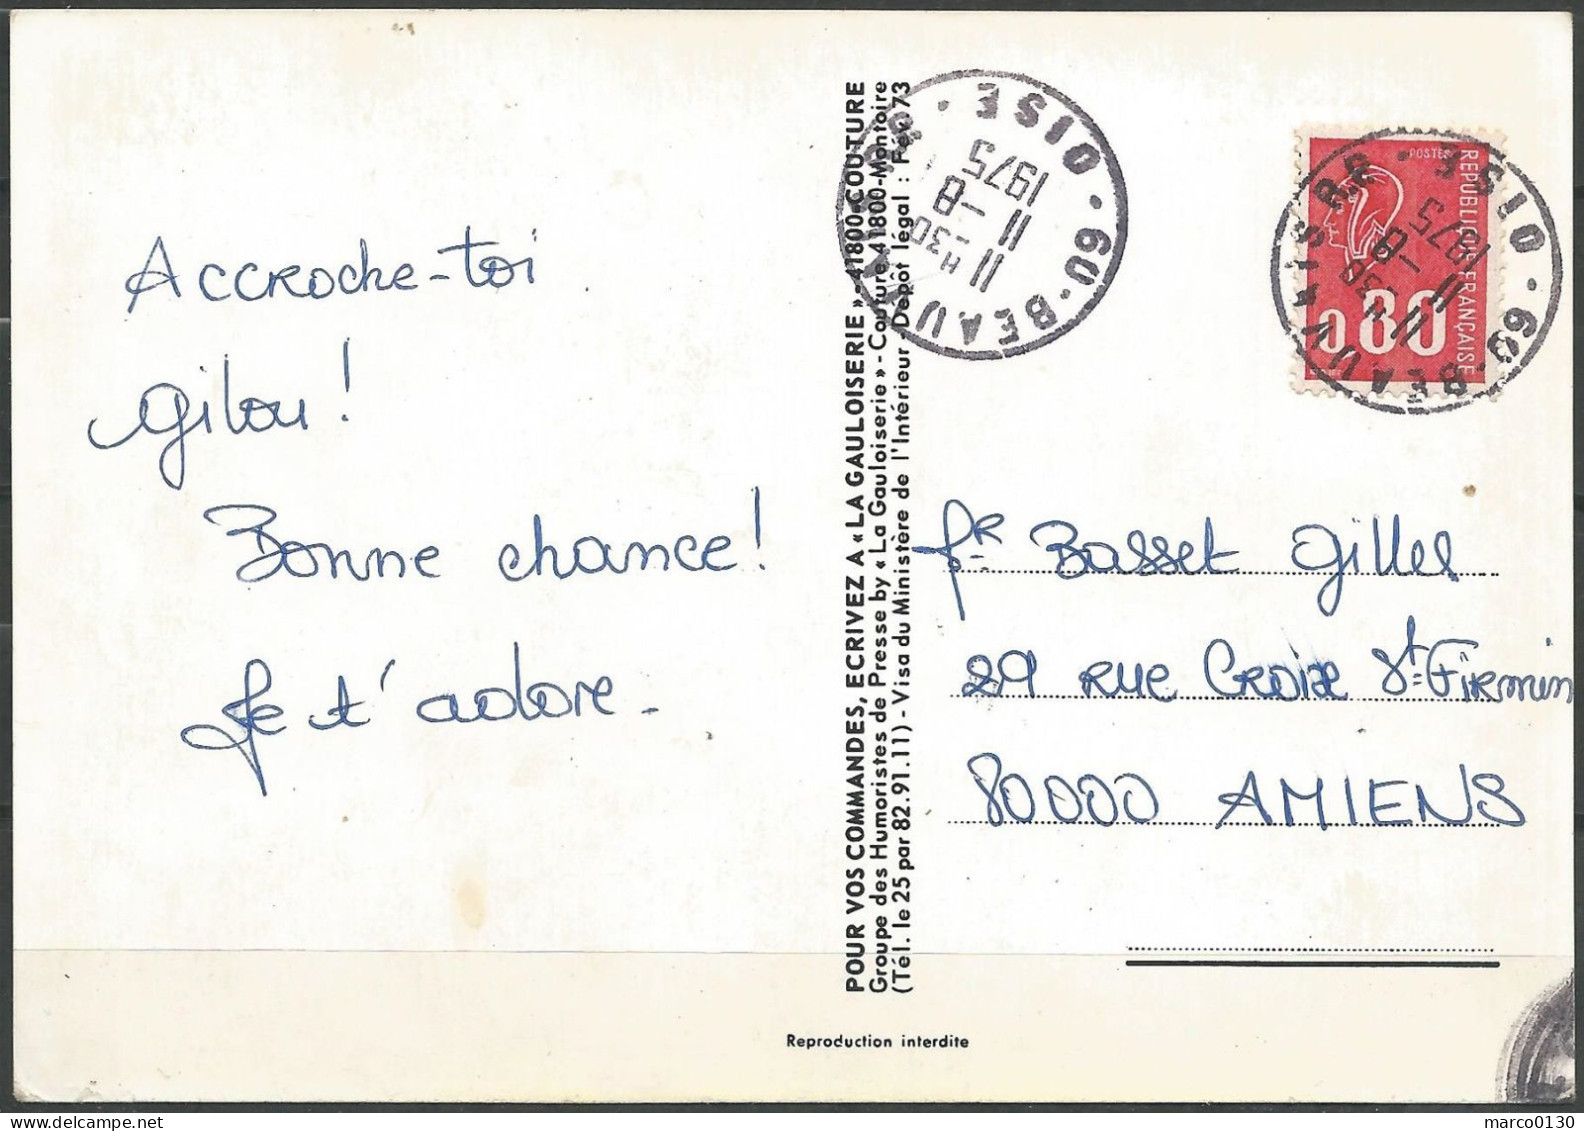 Accroche-toi
Gilou !
Bonne chance !
Je t'adore.
POUR VOS COMMANDES, ECRIVEZ A « LA GAULOISERIE » - 41800-COUTURE
Groupe des Humoristes de Presse by « La Gauloiserie » - Couture 41800-Montoire
(Tél. le 25 par 82.91.11) - Visa du Ministère de l'Intérieur Dépôt légal : Fév. 73
60-BEAUVAIS RP · OISE
11 H 30
11 - 8
1975
POSTES
REPUBLIQUE FRANÇAISE
0,80
60-BEAUVAIS RP · OISE
11 H 30
11 - 8
1975
Basset Gilles
29 rue Croix St-Firmin
80000 AMIENS
Reproduction interdite
marco0130